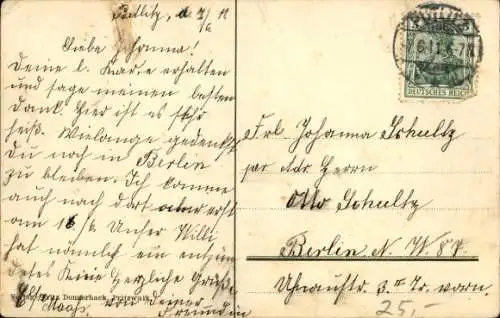 Putlitz, d. 7/6 11
Liebe Johanna!
Deine l. Karte erhalten
und sage meinen besten
Dank. Hier ist es sehr
heiß. Wielange gedenkst
Du noch in Berlin
zu bleiben. Ich komme
auch nach dort aber erst
am 16/6. Unser Willi
hat nämlich ein entzün
detes Knie Herzliche Grüße
von Deiner
Freundin
Fritz Donnerhack, Pritzwalk.
DEUTSCHES REICH
Frl. Johanna Schultz
per Adr. Herrn
Otto Schultz
Berlin N. W. 87.
3. II Tr. vorn.
25,-